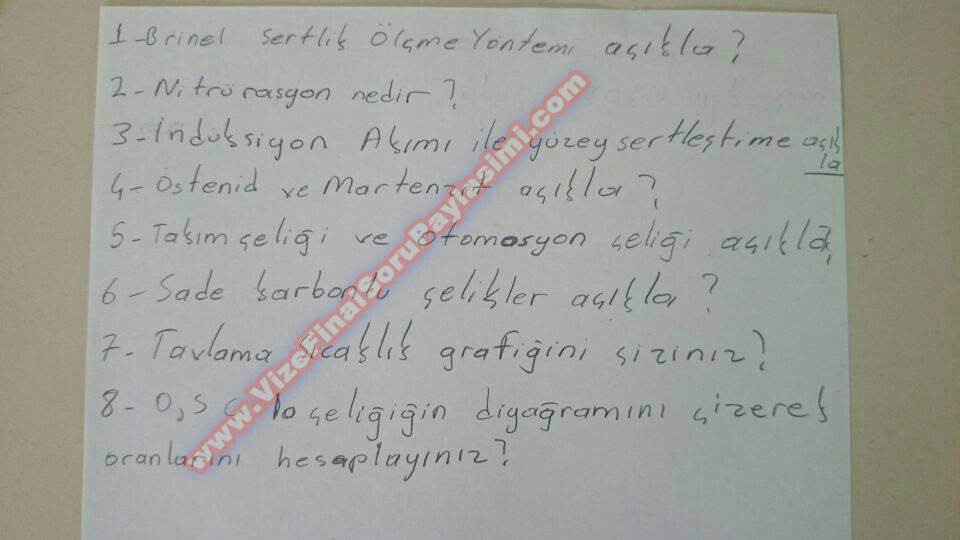 1-Brinel sertlik Ölçme Yöntemi açıkla?
2-Nitrürasyon nedir?
3-İndüksiyon Akımı ile yüzey sertleştime açık
la
4-Östenid ve Martenzit açıkla?
5-Takım çeliği ve otomasyon çeliği açıkla
6-Sade karbonlu çelikler açıkla?
7-Tavlama Sıcaklık grafiğini siziniz?
8-0,5 C lo çeliğiğin diyağramını çizerek
oranlarını hesaplayınız?
www.VizeFinalSoruPaylasimi.com